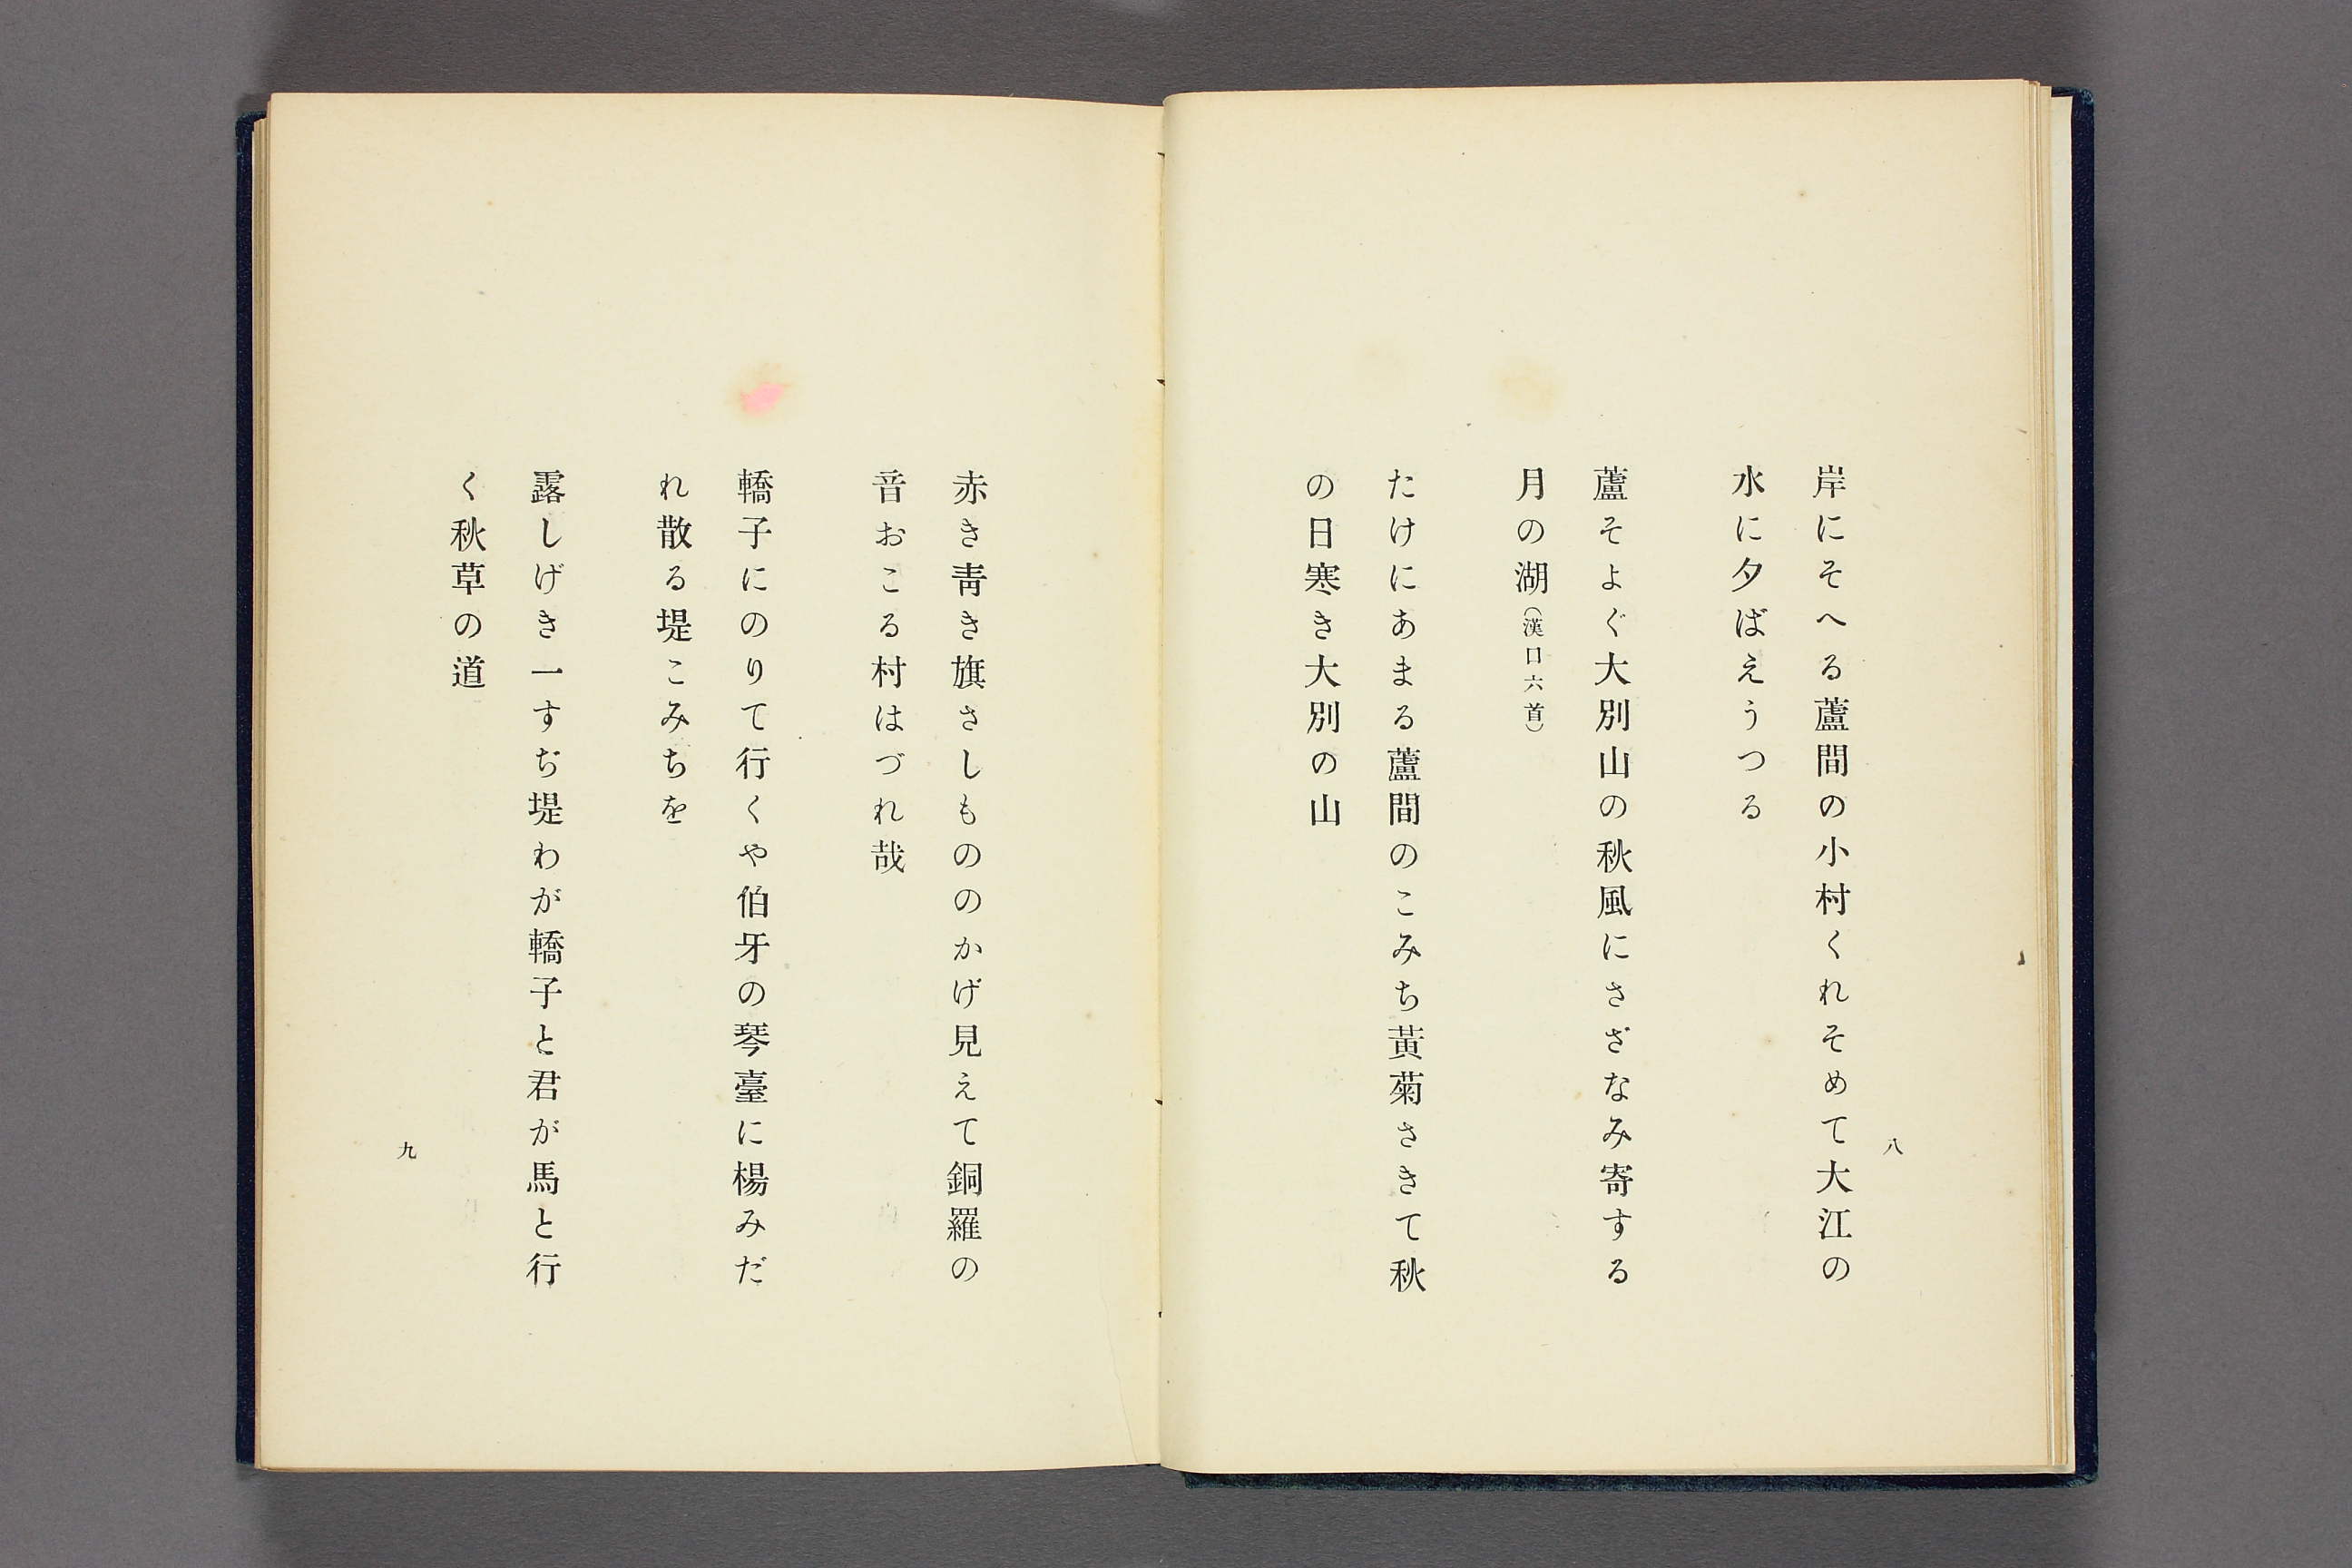 岸にそへる蘆間の小村くれそめて大江の
水に夕ばえうつる
蘆そよぐ大別山の秋風にさざなみ寄する
月の湖（漢口六首）
たけにあまる蘆間のこみち黃菊さきて秋
の日寒き大別の山
八
赤き靑き旗さしもののかげ見えて銅羅の
音おこる村はづれ哉
轎子にのりて行くや伯牙の琴臺に楊みだ
れ散る堤こみちを
露しげき一すぢ堤わが轎子と君が馬と行
く秋草の道
九